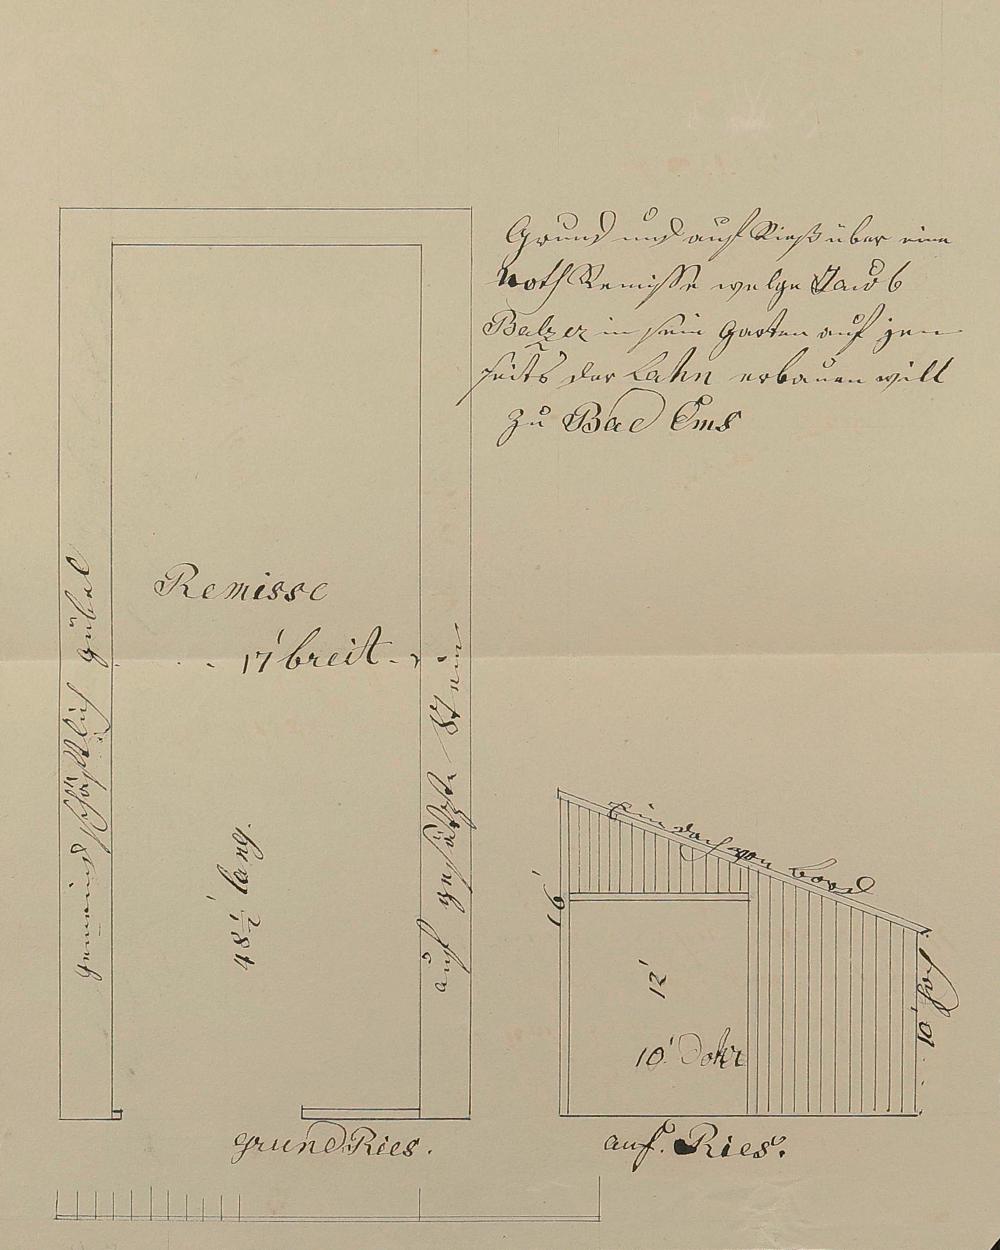 Grund und auf Rieß über eine
Noth Remisse welge Jacob
Balzer in sein Garten auf jen
seits der Lahn erbauen will
zu Bad Ems
Remisse
17' breit
48½' lang.
gemeindschäftlich gübel
auf gesätzte Stein
Ein dach von Bord
16'
12'
10' Dohr
10' hoh
grund Ries.
auf. Ries.